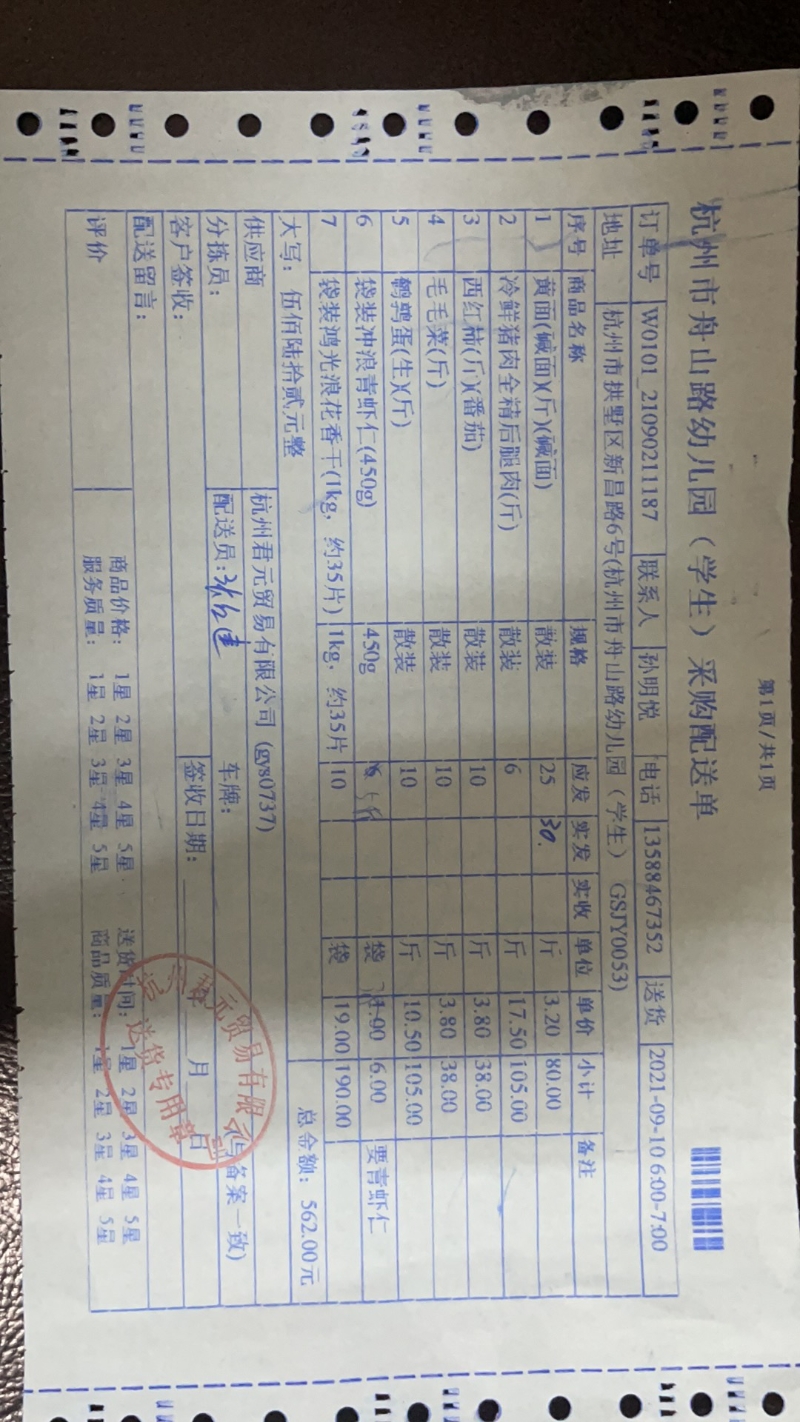 第1页/共1页
杭州市舟山路幼儿园（学生）采购配送单
订单号 W0101_21090211187 联系人 孙明悦 电话 13588467352 送货 2021-09-10 6:00-7:00
地址 杭州市拱墅区新昌路6号(杭州市舟山路幼儿园（学生） GSJY0053)
序号 商品名称 规格 应发 实发 实收 单位 单价 小计 备注
1 黄面(碱面)(斤)(碱面) 散装 25 30. 斤 3.20 80.00
2 冷鲜猪肉全精后腿肉(斤) 散装 6 斤 17.50 105.00
3 西红柿(斤)(番茄) 散装 10 斤 3.80 38.00
4 毛毛菜(斤) 散装 10 斤 3.80 38.00
5 鹌鹑蛋(生)(斤) 散装 10 斤 10.50 105.00
6 袋装冲浪青虾仁(450g) 450g 袋 6.00 要青虾仁
7 袋装鸿光浪花香干(1kg，约35片) 1kg，约35片 10 袋 19.00 190.00
大写：伍佰陆拾贰元整 总金额：562.00元
供应商 杭州君元贸易有限公司 (gys0737)
分拣员： 配送员： 车牌： (与备案一致)
客户签收： 签收日期： 年 月 日
配送留言：
评价 商品价格： 1星 2星 3星 4星 5星 送货时间： 1星 2星 3星 4星 5星
服务质量： 1星 2星 3星 4星 5星 商品质量： 1星 2星 3星 4星 5星
元贸易有限
送货专用章